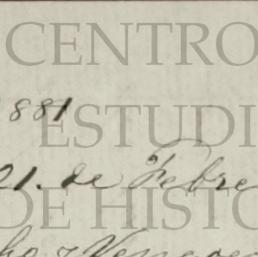 CENTRO
881
ESTUDI
21. de Febre
DE HISTO